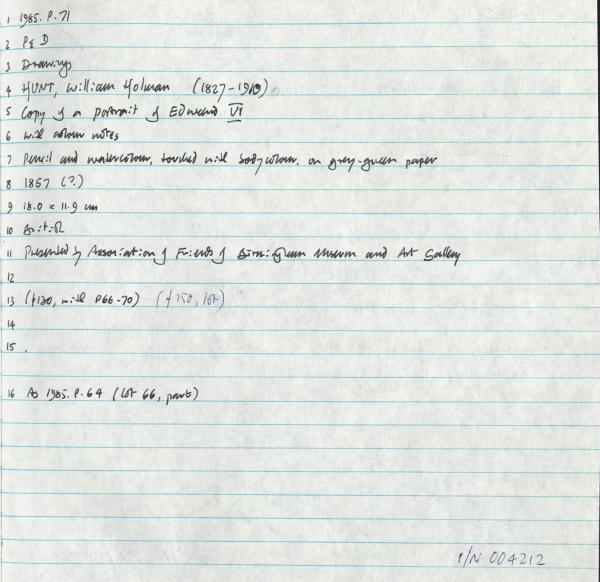 1 1985.P.71
2 P&D
3 Drawings
4 HUNT, William Holman (1827-1910)
5 Copy of a portrait of Edward VI
6 with colour notes
7 Pencil and watercolour, touched with bodycolour, on grey-green paper
8 1857 (?)
9 18.0 x 11.9 cm
10 British
11 Presented by Association of Friends of Birmingham Museum and Art Gallery
12
13 (£120, with P66-70) (£750, lot)
14
15 .
16 As 1985.P.64 (lot 66, part)
P/N 004212